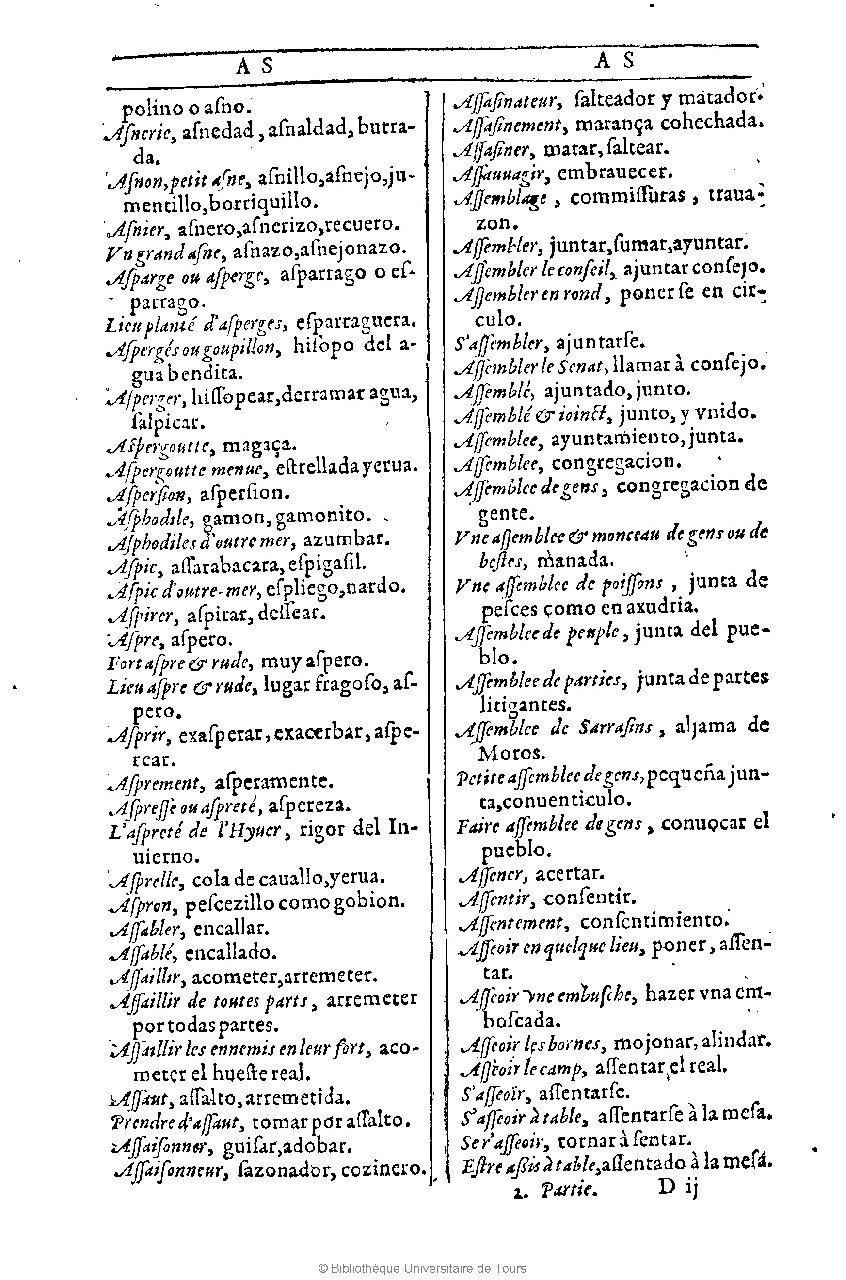 A S
polino o aſno.
Aſnerie, aſnedad, aſnaldad, burra-
da.
Aſnon, petit aſne, aſnillo, aſnejo, ju-
mentillo, borriquillo.
Aſnier, aſnero, aſnerizo, recuero.
Vn grand aſne, aſnazo, aſnejonazo.
Aſparge ou aſperge, aſparrago o eſ-
parrago.
Lieu planté d'aſperges, eſparraguera.
Aſpergés ou goupillon, hiſopo del a-
gua bendita.
Aſperger, hiſſopear, derramar agua,
ſalpicar.
Aſpergoutte, magaça.
Aſpergoutte menue, eſtrellada yerua.
Aſperſion, aſperſion.
Aſphodile, gamon, gamonito.
Aſphodiles d'outre mer, azumbar.
Aſpic, aſſarabacara, eſpigaſil.
Aſpic d'outre-mer, eſpliego, nardo.
Aſpirer, aſpirar, deſſear.
Aſpre, aſpero.
Fort aſpre & rude, muy aſpero.
Lieu aſpre & rude, lugar fragoſo, aſ-
pero.
Aſprir, exaſperar, exacerbar, aſpe-
rear.
Aſprement, aſperamente.
Aſpreſſe ou aſpreté, aſpereza.
L'aſpreté de l'Hyuer, rigor del In-
uierno.
Aſprelle, cola de cauallo, yerua.
Aſpron, peſcezillo como gobion.
Aſſabler, encallar.
Aſſablé, encallado.
Aſſaillir, acometer, arremeter.
Aſſaillir de toutes parts, arremeter
por todas partes.
Aſſaillir les ennemis en leur fort, aco-
meter el hueſte real.
Aſſaut, aſſalto, arremetida.
Prendre d'aſſaut, tomar por aſſalto.
Aſſaiſonner, guiſar, adobar.
Aſſaiſonneur, ſazonador, cozinero.
A S
Aſſaſinateur, ſalteador y matador.
Aſſaſinement, matança cohechada.
Aſſaſiner, matar, ſaltear.
Aſſauuagir, embrauecer.
Aſſemblage, commiſſuras, traua-
zon.
Aſſembler, juntar, ſumar, ayuntar.
Aſſembler le conſeil, ajuntar conſejo.
Aſſembler en rond, poner ſe en cir-
culo.
S'aſſembler, ajuntarſe.
Aſſembler le Senat, llamar à conſejo.
Aſſemblé, ajuntado, junto.
Aſſemblé & ioinct, junto, y vnido.
Aſſemblee, ayuntamiento, junta.
Aſſemblee, congregacion.
Aſſemblee de gens, congregacion de
gente.
Vne aſſemblee & monceau de gens ou de
beſtes, manada.
Vne aſſemblee de poiſſons, junta de
peſces como en axudria.
Aſſemblee de peuple, junta del pue-
blo.
Aſſemblee de parties, junta de partes
litigantes.
Aſſemblee de Sarraſins, aljama de
Moros.
Petite aſſemblee de gens, pequeña jun-
ta, conuenticulo.
Faire aſſemblee de gens, conuocar el
pueblo.
Aſſener, acertar.
Aſſentir, conſentir.
Aſſentement, conſentimiento.
Aſſeoir en quelque lieu, poner, aſſen-
tar.
Aſſeoir vne embuſche, hazer vna em-
boſcada.
Aſſeoir les bornes, mojonar, alindar.
Aſſeoir le camp, aſſentar el real.
S'aſſeoir, aſſentarſe.
S'aſſeoir à table, aſſentarſe à la meſa.
Se r'aſſeoir, tornar à ſentar.
Eſtre aſſis à table, aſſentado à la meſa.
2. Partie. D ij
© Bibliothèque Universitaire de Tours